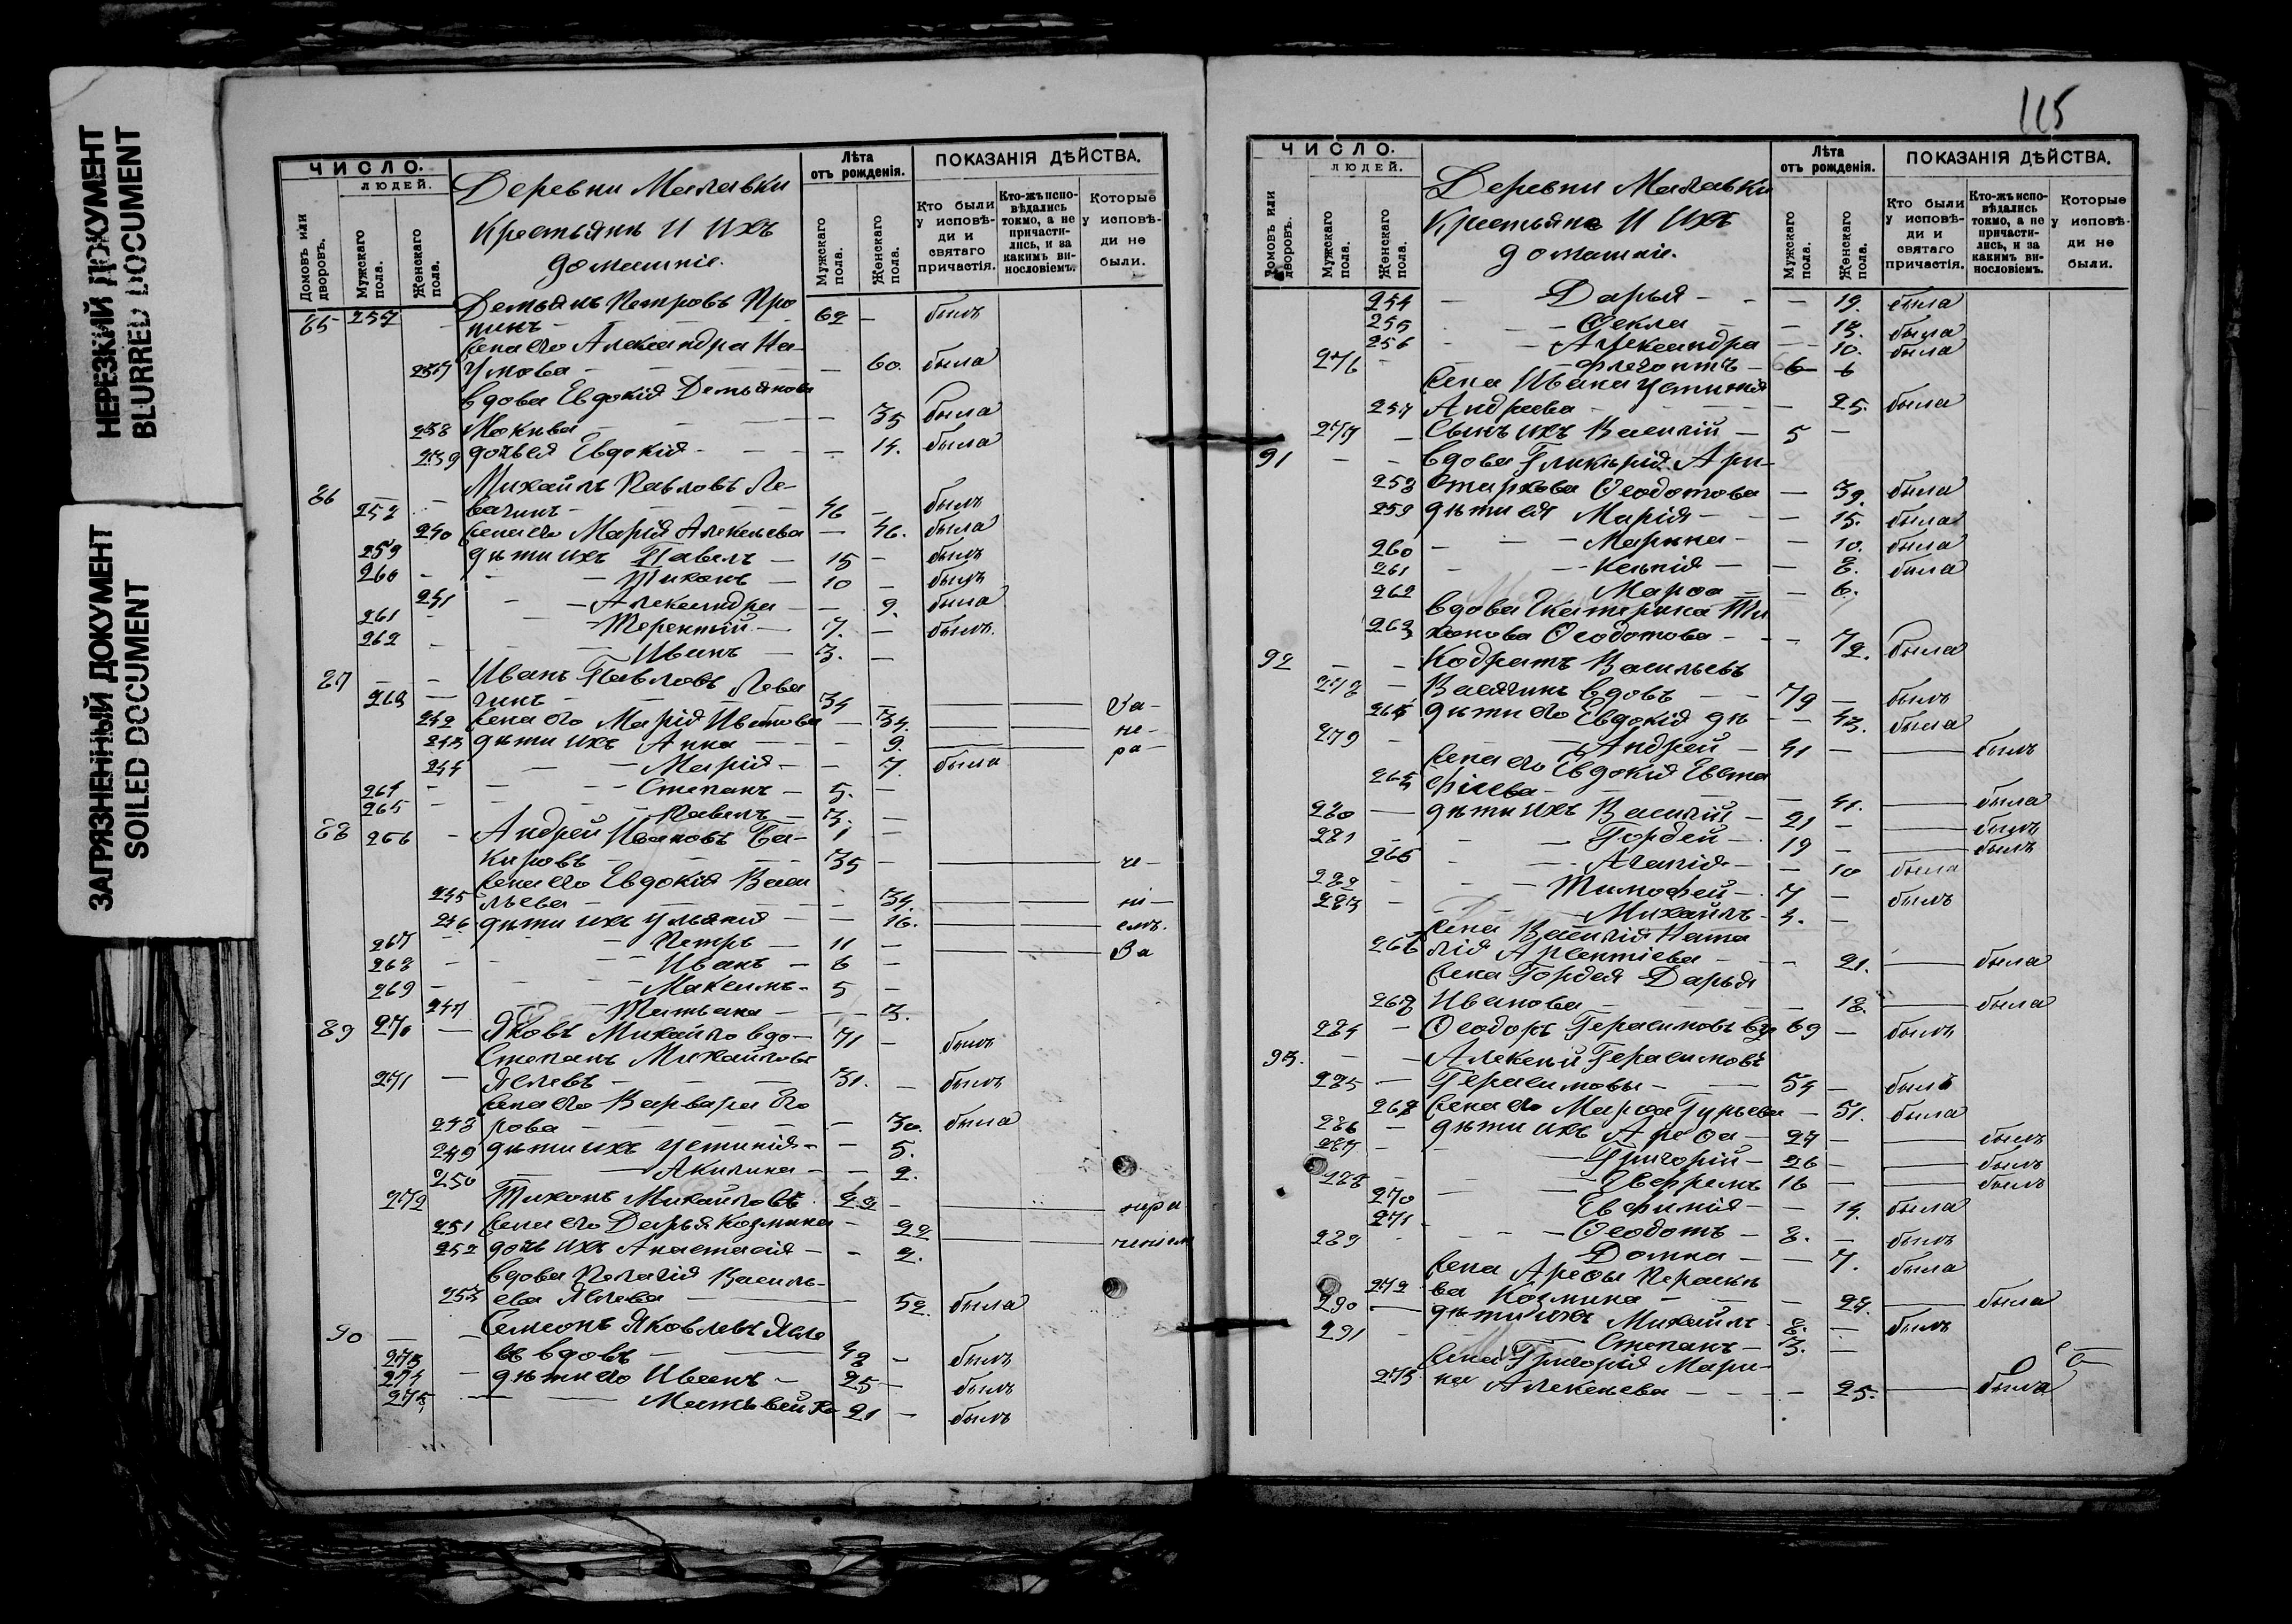 НЕРЕЗКИЙ ДОКУМЕНТ
BLURRED DOCUMENT
ЗАГРЯЗНЕННЫЙ ДОКУМЕНТ
SOILED DOCUMENT
ЧИСЛО.
ЛЮДЕЙ.
Домовъ или дворовъ.
Мужскаго пола.
Женскаго пола.
Деревни Малавки
Крестьянъ и ихъ
домашніе.
Лѣта
отъ рожденія.
Мужскаго пола.
Женскаго пола.
ПОКАЗАНІЯ ДѢЙСТВА.
Кто были у исповѣди и святаго причастія.
Кто-жъ исповѣдались токмо, а не причастились, и за какимъ винословіемъ.
Которые у исповѣди не были.
85 257 Демьянъ Петровъ Про 62 былъ
нинъ
жена его Александра На-
237 умова 60. была
вдова Евдокія Демьянова
238 Мокѣва 35 была
239 дочь ея Евдокія 14. была
86 Михаилъ Павловъ Ле-
258 вачинъ 46 былъ
240 жена его Марія Алексѣева 46. была
259 дѣти ихъ Павелъ 15 былъ
260 Тихонъ 10 былъ
241 Александра 9. была
261 Терентій 7. былъ
262 Иванъ 3.
87 Иванъ Павловъ Лева
263 чинъ 34 За-
242 жена его Марія Иванова 34. не-
243 дѣти ихъ Анна 9. ра-
244 Марія 7. была
264 Степанъ 5.
265 Павелъ 3.
88 266 Андрей Ивановъ Ба- 1
кировъ 35 че-
жена его Евдокія Васи
245 льева 34. ні-
246 дѣти ихъ Ульянія 16. емъ.
267 Петръ 11 За
268 Иванъ 6
269 Максимъ 5
247 Татьяна 3.
89 270 Яковъ Михайло вдо 71 былъ
Степанъ Михайловъ
271 Яслевъ 31. былъ
жена его Варвара Его
248 рова 30. была
249 дѣти ихъ Устинія 5.
250 Акилина 2.
272 Тихонъ Михайловъ 22 нера
251 жена его Дарья Козмина 22
252 дочь ихъ Анастасія 2.
вдова Пелагія Василь-
253 ева Яслева 52. была
90 Семеонъ Яковлевъ Ясле
273 въ вдовъ 48 былъ
274 дѣти его Иванъ 25 былъ
275 Матвей 21 былъ
115
ЧИСЛО.
ЛЮДЕЙ.
Домовъ или дворовъ.
Мужскаго пола.
Женскаго пола.
Деревни Малавки
Крестьяне и ихъ
домашніе.
Лѣта
отъ рожденія.
Мужскаго пола.
Женскаго пола.
ПОКАЗАНІЯ ДѢЙСТВА.
Кто были у исповѣди и святаго причастія.
Кто-жъ исповѣдались токмо, а не причастились, и за какимъ винословіемъ.
Которые у исповѣди не были.
254 Дарья 19. была
255 Ѳекла 13. была
256 Александра 10. была
276 Флегонтъ 6
жена Ивана Устинія
257 Андреева 25. была
277 Сынъ ихъ Василій 5
91 вдова Гликерія Ари-
258 стархова Ѳеодотова 39. была
259 дѣти ея Марія 15. была
260 Марина 10. была
261 Ксенія 8. была
262 Марѳа 6.
вдова Екатерина Ти
263 хонова Ѳеодотова 72. была
92 Кодратъ Васильевъ
278 Васячинъ вдовъ 79 былъ
264 дѣти его Евдокія дѣ 43. была
279 Андрей 41 былъ
жена его Евдокія Евста
265 фіева 41. была
280 дѣти ихъ Василій 21 былъ
281 Гордей 19 былъ
266 Агапія 10 была
282 Тимофей 7 былъ
283 Михаилъ 4.
жена Василія Ната
266 лія Арсентіева 21. была
жена Гордея Дарья
267 Иванова 18. была
284 Ѳеодоръ Герасимовъ вд 69 былъ
93. Алексѣй Герасимовъ
285 Герасимовы 54 былъ
268 жена его Марѳа Гурьева 51. была
286 дѣти ихъ Ареѳа 27 былъ
287 Григорій 26 былъ
288 Евфремъ 16 былъ
270 Евфимія 14. была
271 Ѳеодотъ 8. былъ
289 Домна 7. была
жена Ареѳы Параскѣ
272 ва Козмина 27. была
290 дѣти ихъ Михаилъ 8. былъ
291 Степанъ 3.
жена Григорія Мари-
273 на Алексѣева 25. была